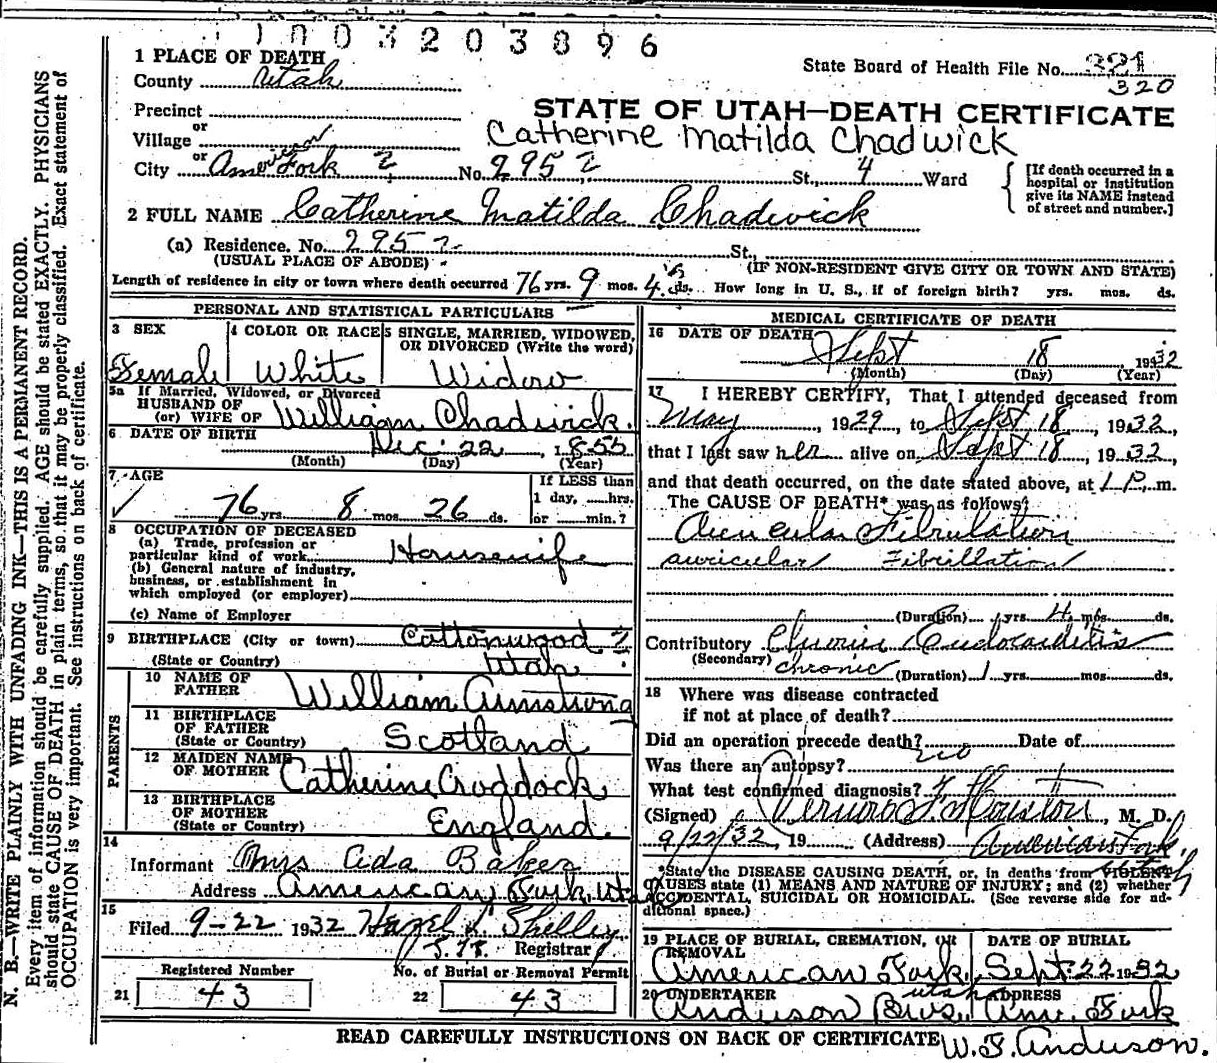 1003203896
1 PLACE OF DEATH
State Board of Health File No. 321
320
County Utah
Precinct
STATE OF UTAH—DEATH CERTIFICATE
or
Village
Catherine Matilda Chadwick
or
City American Fork 2 No. 295 2 St., 4 Ward
[If death occurred in a
hospital or institution
give its NAME instead
of street and number.]
2 FULL NAME Catherine Matilda Chadwick
(a) Residence. No. 295 2 St.,
(USUAL PLACE OF ABODE) (IF NON-RESIDENT GIVE CITY OR TOWN AND STATE)
Length of residence in city or town where death occurred 76 yrs. 9 mos. 4 ds. How long in U. S., if of foreign birth? yrs. mos. ds.
PERSONAL AND STATISTICAL PARTICULARS
3 SEX 4 COLOR OR RACE 5 SINGLE, MARRIED, WIDOWED,
OR DIVORCED (Write the word)
Female White Widow
5a If Married, Widowed, or Divorced
HUSBAND OF
(or) WIFE OF William Chadwick.
6 DATE OF BIRTH Dec. 22, 1855
(Month) (Day) (Year)
7 AGE If LESS than
1 day, ......hrs.
76 yrs. 8 mos. 26 ds. or ......min.?
8 OCCUPATION OF DECEASED
(a) Trade, profession or
particular kind of work Housewife
(b) General nature of industry,
business, or establishment in
which employed (or employer)
(c) Name of Employer
9 BIRTHPLACE (City or town) Cottonwood ?
(State or Country) Utah ?
PARENTS
10 NAME OF
FATHER William Armstrong
11 BIRTHPLACE
OF FATHER
(State or Country) Scotland
12 MAIDEN NAME
OF MOTHER Catherine Croddock
13 BIRTHPLACE
OF MOTHER
(State or Country) England.
14
Informant Mrs Ada Baker
Address American Fork, Utah
15
Filed 9-22 1932 Hazel S Shelley
Registrar
Registered Number No. of Burial or Removal Permit
21 43 22 43
MEDICAL CERTIFICATE OF DEATH
16 DATE OF DEATH
Sept 18 1932
(Month) (Day) (Year)
17 I HEREBY CERTIFY, That I attended deceased from
May, 1929, to Sept 18, 1932,
that I last saw her alive on Sept 18, 1932,
and that death occurred, on the date stated above, at 1 P. m.
The CAUSE OF DEATH* was as follows:
Auricular Fibrulation
auricular Fibrillation
(Duration) 1 yrs. 4 mos. ds.
Contributory Chronic Endocarditis
(Secondary) chronic (Duration) 1 yrs. mos. ds.
18 Where was disease contracted
if not at place of death?
Did an operation precede death? no Date of
Was there an autopsy? no
What test confirmed diagnosis?
(Signed) Vernon F. Houston, M. D.
9/22/32, 19 (Address) American Fork,
Utah
*State the DISEASE CAUSING DEATH, or, in deaths from VIOLENT
CAUSES state (1) MEANS AND NATURE OF INJURY; and (2) whether
ACCIDENTAL, SUICIDAL OR HOMICIDAL. (See reverse side for ad-
ditional space.)
19 PLACE OF BURIAL, CREMATION, OR REMOVAL DATE OF BURIAL
American Fork, Utah Sept. 22 1932
20 UNDERTAKER ADDRESS
Anderson Bros. Am. Fork
READ CAREFULLY INSTRUCTIONS ON BACK OF CERTIFICATE
W. F. Anderson.
N. B.—WRITE PLAINLY WITH UNFADING INK—THIS IS A PERMANENT RECORD.
Every item of information should be carefully supplied. AGE should be stated EXACTLY. PHYSICIANS
should state CAUSE OF DEATH in plain terms, so that it may be properly classified. Exact statement of
OCCUPATION is very important. See instructions on back of certificate.